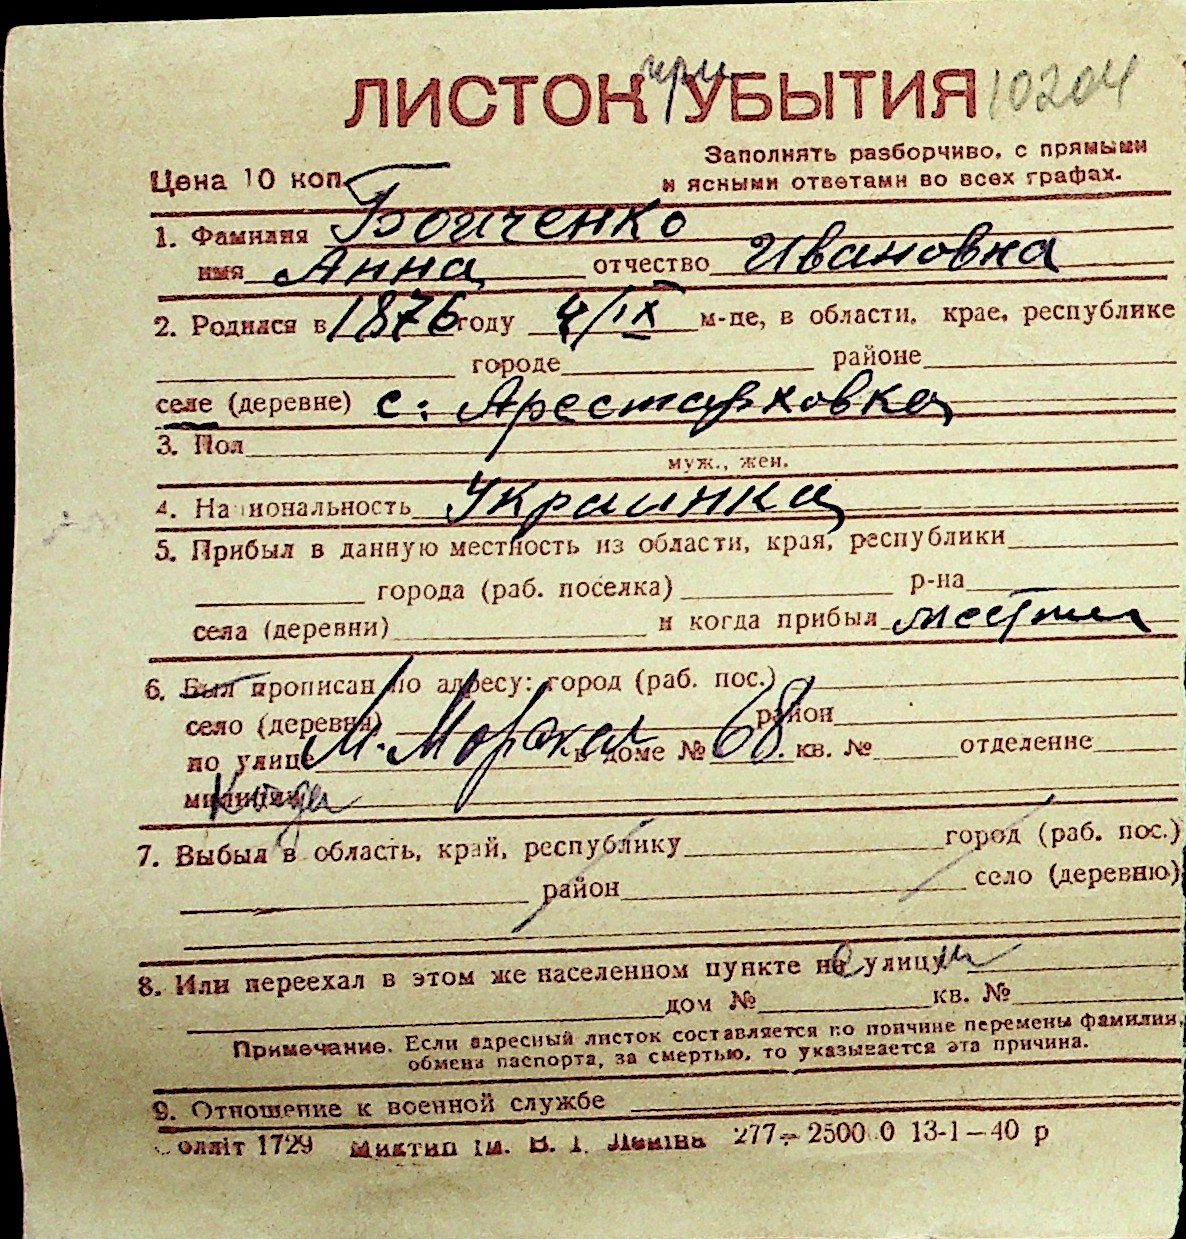 ЛИСТОК УБЫТИЯ 10204
при
Заполнять разборчиво, с прямыми
Цена 10 коп. и ясными ответами во всех графах.
1. Фамилия Бойченко
имя Анна отчество Ивановна
2. Родился в 1876 году 4/IX м-це, в области, крае, республике
городе районе
селе (деревне) с. Арестарховка
3. Пол
муж., жен.
4. Национальность Украинка
5. Прибыл в данную местность из области, края, республики
города (раб. поселка) р-на
села (деревни) и когда прибыл
6. Был прописан по адресу: город (раб. пос.)
село (деревня) район
по улице М. Морская в доме № 68. кв. № отделение
милиции
7. Выбыл в область, край, республику город (раб. пос.)
район село (деревню)
8. Или переехал в этом же населенном пункте на улицу
дом № кв. №
Примечание. Если адресный листок составляется по причине перемены фамилии,
обмена паспорта, за смертью, то указывается эта причина.
9. Отношение к военной службе
олліт 1729 Миктип ім. В. І. Леніна 277 – 2500 0 13-1–40 р